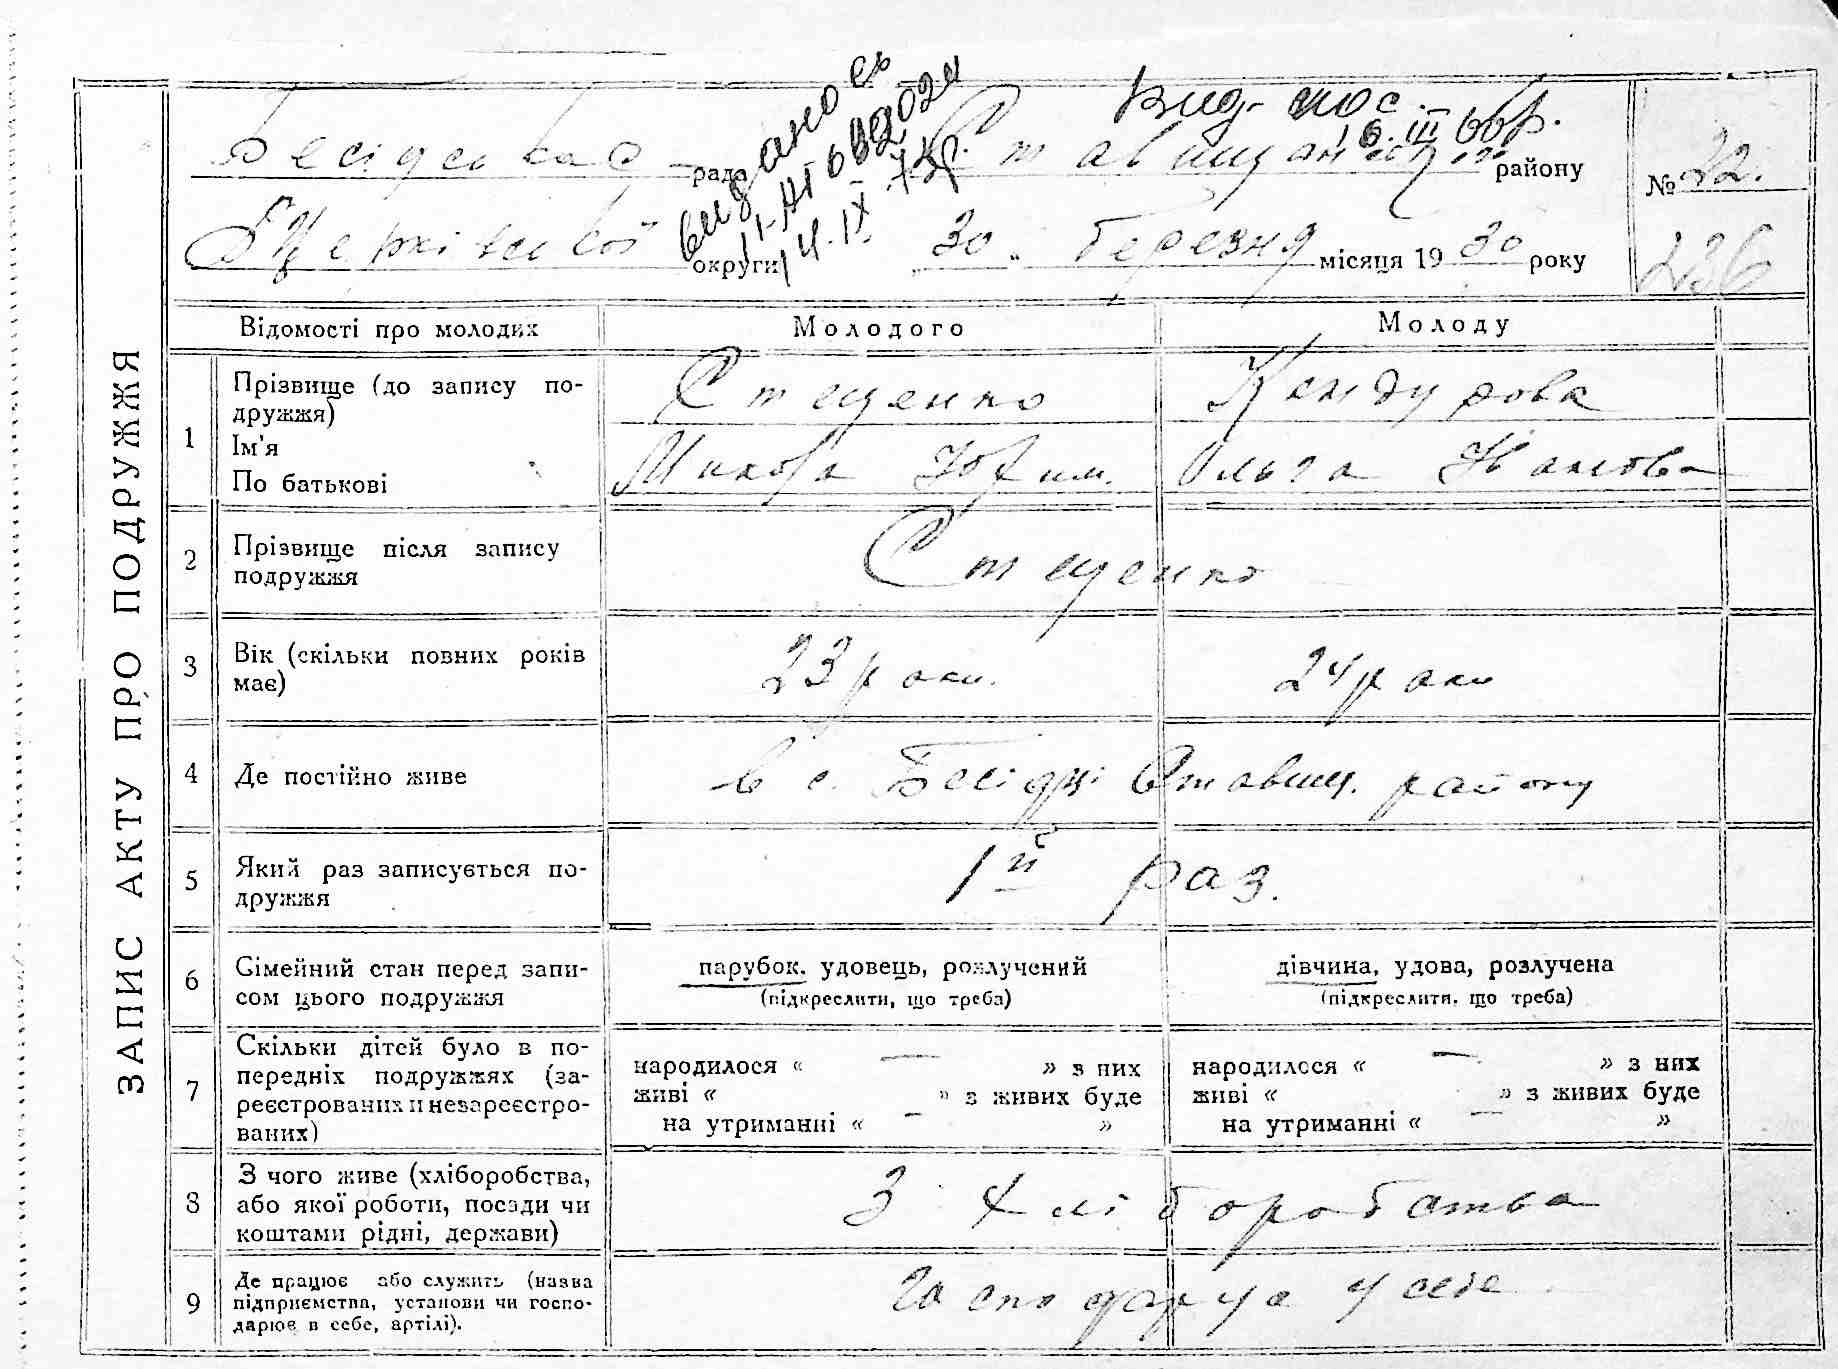 ЗАПИС АКТУ ПРО ПОДРУЖЖЯ
Вид. пос.
16. III 66р.
видано св
14. IX. 73р.
Бесідська рада Ставищанськ району № 22.
БЦерківської округи „30„ березня місяця 1930 року
236
Відомості про молодих Молодого Молоду
1 Прізвище (до запису по-
дружжя) Стеценко Кендюрова
Ім'я
По батькові Микола Юхим. Ольга Іванова
2 Прізвище після запису
подружжя Стеценко
3 Вік (скільки повних років
має) 23 роки. 24 роки
4 Де постійно живе в с. Бесідці Ставищ. району
5 Який раз записується по-
дружжя 1й раз.
6 Сімейний стан перед запи-
сом цього подружжя
парубок, удовець, розлучений дівчина, удова, розлучена
(підкреслити, що треба) (підкреслити, що треба)
7 Скільки дітей було в по-
передніх подружжях (за-
реєстрованих и незареєстро-
ваних)
народилося « — » з них народилося « — » з них
живі « » з живих буде живі « » з живих буде
на утриманні « — » на утриманні « — »
8 З чого живе (хліборобства,
або якої роботи, посади чи
коштами рідні, держави) З хліборобства
9 Де працює або служить (назва
підприємства, установи чи госпо-
дарює в себе, артілі). Господарує у себе